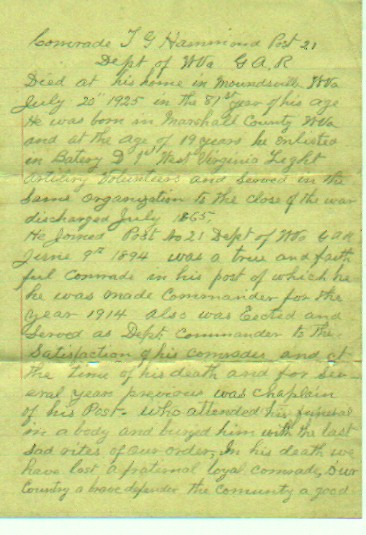 Comrade T G Hammond Post 21
Dept of WVa G A R
Died at his home in Moundsville WVa
July 20" 1925 in the 81st year of his age
He was born in Marshall County WVa
and at the age of 19 years he Enlisted
in Batery D 1st West Virginia Light
Artillry Volunteers and served in the
same organization to the close of the war
discharged July 1865
He Joined Post No 21 Dept of WVa G A R
June 9th 1894 was a true and faith
ful Comrade in his post of which he
he was made Commander for the
year 1914 also was Eected and
served as Dept Commander to the
Satisfaction of his comrades and at
the time of his death and for sev
eral years previous was chaplain
of his Post- who attended his funeral
in a body and buried him with the last
sad rites of our order, In his death we
have lost a fraternal loyal comrade, our
Country a brave defender the Comunty a good